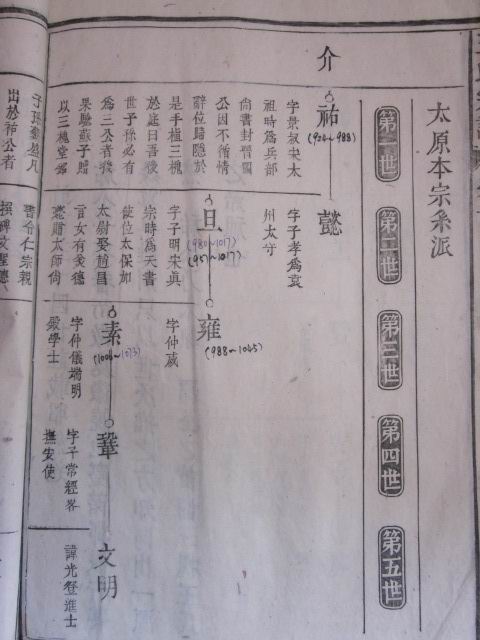 太原本宗系派
第一世
第二世
第三世
第四世
第五世
介
祐
(924~988)
字景叔宋太
祖時為兵部
尚書封晉國
公因不循情
辭位歸隱於
是手植三槐
於庭曰吾後
世子孫必有
為三公者後
果驗蘇子贈
以三槐堂銘
子孫
出於祐公者
懿
字子孝為袁
州太守
旦
(980~1017)
(957~1017)
字子明宋真
宗時為天書
使位太保加
太尉娶趙昌
言女有美德
薨贈太師尚
書令仁宗親
雍
(988~1045)
字仲威
素
(1006~1073)
字仲儀端明
殿學士
鞏
字子常經畧
撫安使
文明
諱光登進士